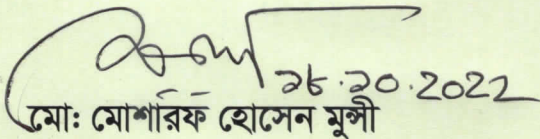 ২৮.১০.2022
মো: মোশাররফ হোসেন মুন্সী